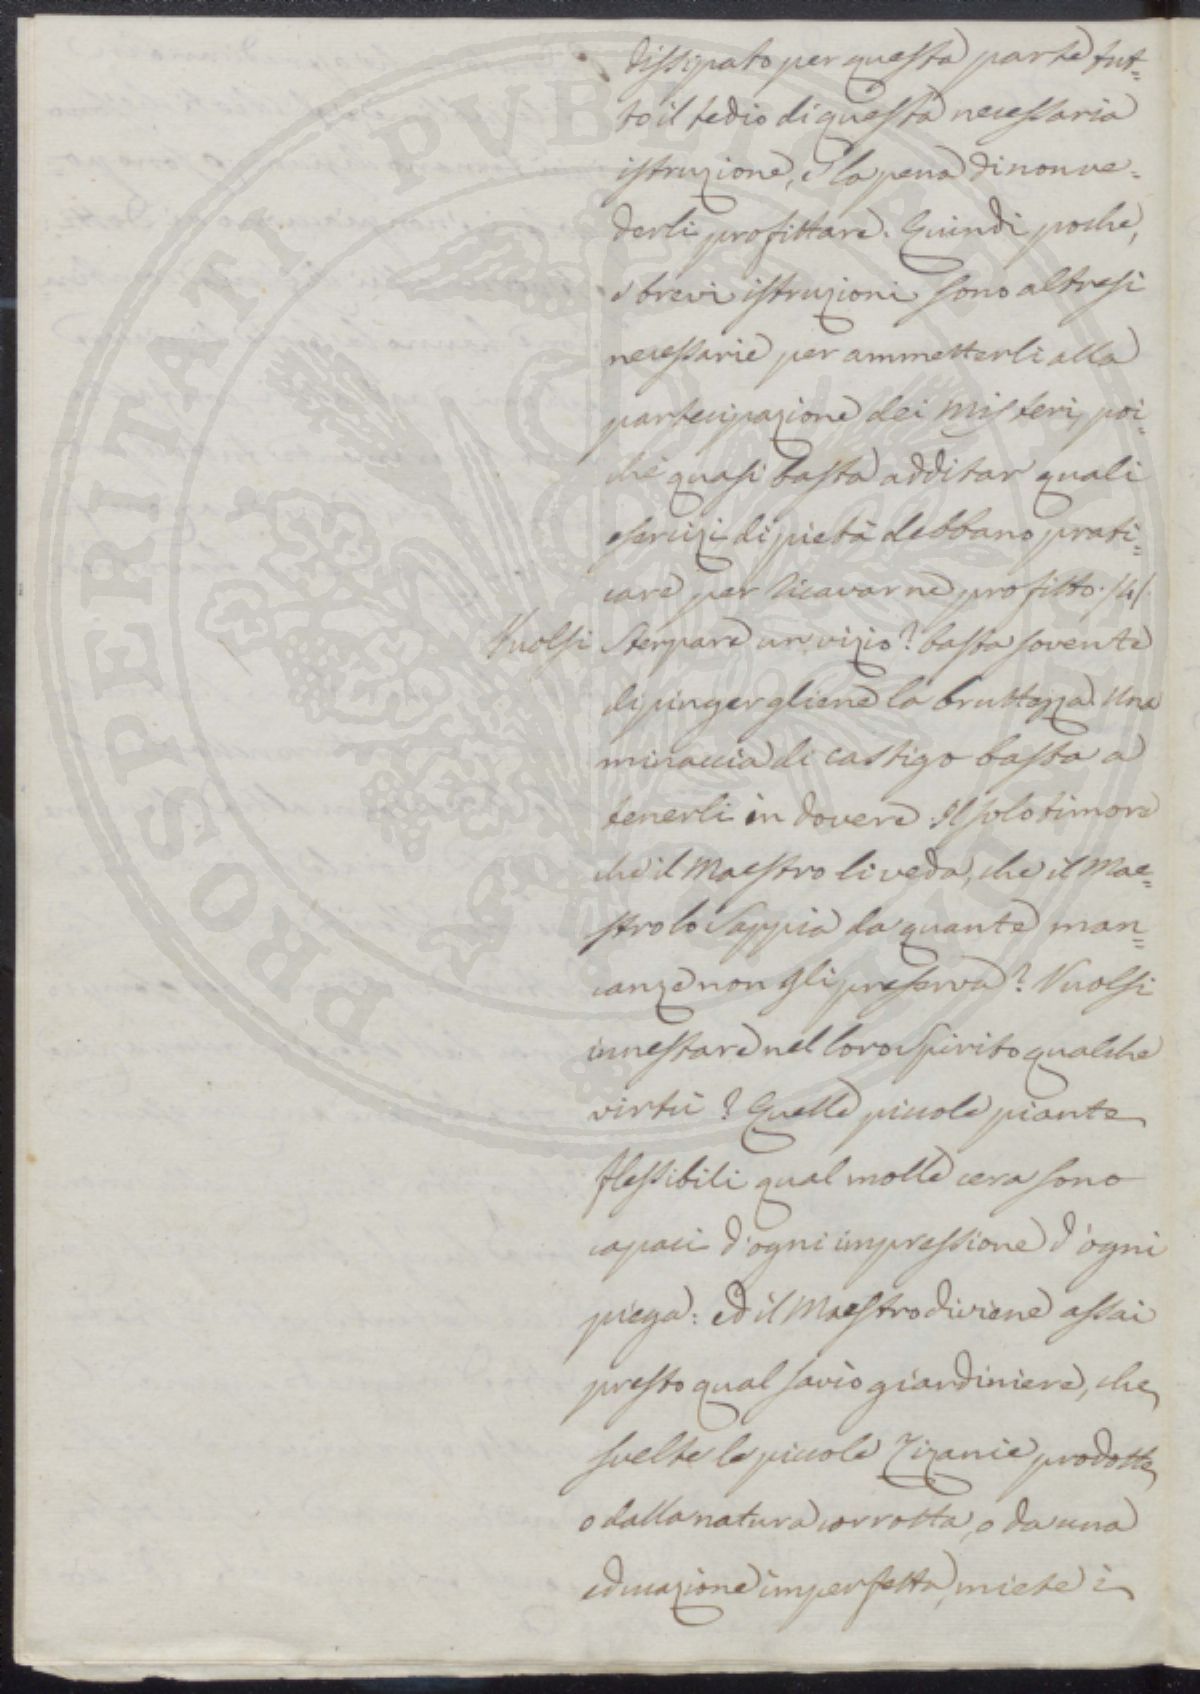 dissipato per questa parte tut=
to il tedio di questa necessaria
istruzione, e la pena di non ve=
derli profittare. Quindi poche,
e brevi istruzioni sono altresì
necessarie per ammetterli alla
partecipazione dei Misteri, poi=
chè quasi basta additar quali
esercizi di pietà debbano prati=
care per ricavarne profitto. /4/.
Vuolsi sterpare un vizio? basta sovente
dipingergliene la bruttezza. Una
minaccia di castigo basta a
tenerli in dovere. Il solo timore
che il Maestro li veda, che il Mae=
stro lo sappia da quante man=
canze non gli preserva? Vuolsi
innestare nel loro spirito qualche
virtù? Quelle piccole piante
flessibili qual molle cera sono
capaci d'ogni impressione d'ogni
piega: ed il Maestro diviene assai
presto qual savio giardiniere, che
svelte le piccole zizanie prodotte
o dalla natura corrotta, o da una
educazione imperfetta, miete i
PROSPERITATI PVBLICAE